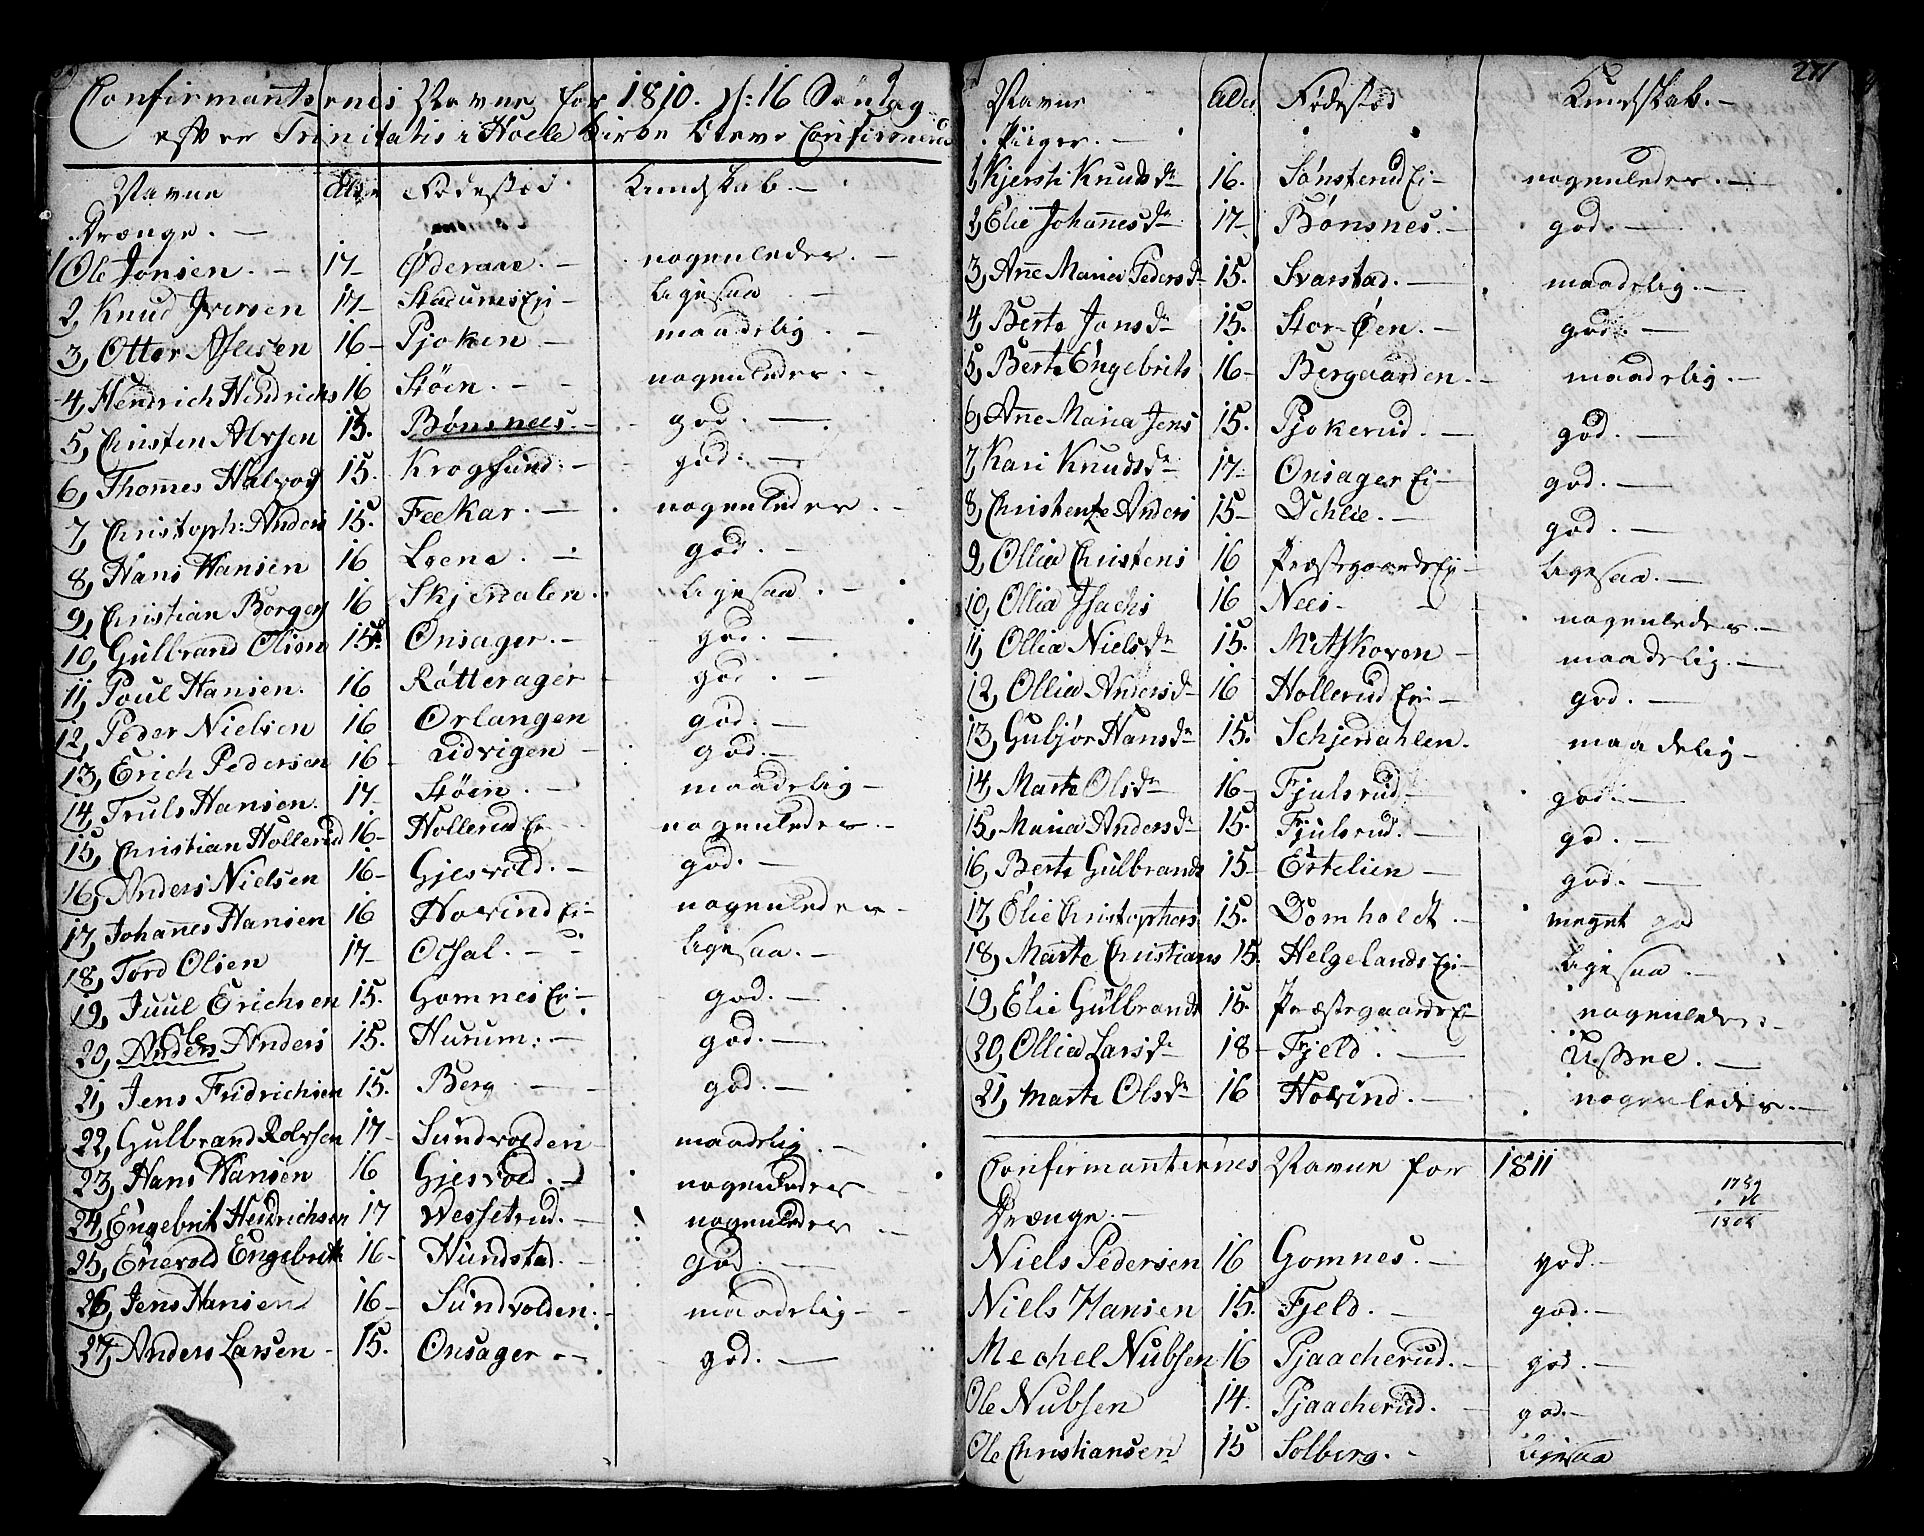 Confirmanternes Navne for 1810. d: 16 Søndag
efter Trinitatis i Hoele Kirke bleve Confirmered
Navne Alder Fødestæd Kundskab. —
Drænge. —
1 Ole Jonsen. — 17 — Øderaae. — nogenledes. —
2, Knud Iversen 17 — Stadumes Ei — ligesaa —
3, Otter Aslesen 16 — Pjoken — maadelig. —
4, Hendrich Hendrichs 16 Støen. — nogenledes. —
5, Christen Alvsen 15. Bønsnees. — god. —
6, Thomes Halvors 15. Krogsund. — god. —
7, Christoph: Anders 15. Feekar. — nogenledes. —
8, Hans Hansen 16 Loena. — god. —
9, Christian Borges 16 Skjendalen. ligesaa. —
10, Gulbrand Olsen 15. Onsager. — god. —
11, Poul Hansen. 16 Røtterager god. —
12, Peder Nielsen 16 Orlangen god. —
13, Erich Pedersen 16 — Lidvigen — god. —
14, Truls Hansen. 17 — Støen. — maadelig —
15, Christian Hollerud 16 — Hollerud Ei nogenledes. —
16, Anders Nielsen 16 — Gjesvold. — god. —
17, Johannes Hansen 16 Hovind Ei — nogenledes —
18, Tord Olsen 17 — Oesal. — ligesaa. —
19, Juul Erichsen 15. Gomnes Ei — god. —
Ole
20, Anders Anders 15. Hurum. — god. —
21, Jens Fridrichsen 15. Berg. — god. —
22, Gulbrand Rolvsen 17 — Sundvolden maadelig. —
23, Hans Hansen 16 Gjesvold. — nogenledes —
24, Engebrit Hendrichsen 17 Wessetrud. — nogenledes —
25, Enevold Engebrits 16 — Hundstad. — god. —
26, Jens Hansen 16 — Sundvolden. — maadelig —
27, Anders Larsen — 15. Onsager. — god. —
271
Navne Alder Fødestæd Kundskab. —
Piiger. —
1, Kjersti Knudsdr 16. Sønsterud Ei — nogenledes. —
2, Elie Johannesdr 17 — Bønsnes. — god. —
3, Anne Maria Pedersdr 15. Svarstad. — maadelig. —
4, Berte Jonsdr 15. Stor-Øen. — god. —
5, Berte Engebrits 16 — Bergaarden. — maadelig. —
6, Anne Maria Jens 15. Pjokerud. — god. —
7, Kari Knudsdr 17 — Onsager Ei — god. —
8, Christentze Anders 15 — Dehlie. — god. —
9, Ollia Christens 16 Præstegaards Ei — ligesaa. —
10, Ollia Isachs 16 Nees — nogenledes. —
11, Ollia Nielsdr 15. Mitskoven — maadelig. —
12, Ollia Andersdr 16 Hollerud Ei — god. —
13, Gubjør Hansdr 15. Schjerdahlen. maadelig —
14, Marte Olsdr 16 — Fjulsrud — god. —
15, Maria Andersdr 15. Fjulsrud. — god. —
16, Berte Gulbrands 15 — Ertelien — god. —
17, Elie Christophers 15. Domholdt. — meget god
18, Marte Christians 15. Helgelands Ei — ligesaa —
19, Elie Gulbrands 15. Præstegaards Ei — nogenledes —
20, Ollia Larsdr 18 — Fjeld. — —
21, Marte Olsdr 16 Hovind. — nogenledes. —
Confirmanternes Navne for 1811
Drænge. —
1789
1804
Niels Pedersen 16 Gomnes. — god. —
Niels Hansen 15. Fjeld. — god. —
Mechel Nubsen 16 Pjaacherud. — god. —
Ole Nubsen 14. Pjaacherud. — god. —
Ole Christiansen 15 Solberg. — ligesaa